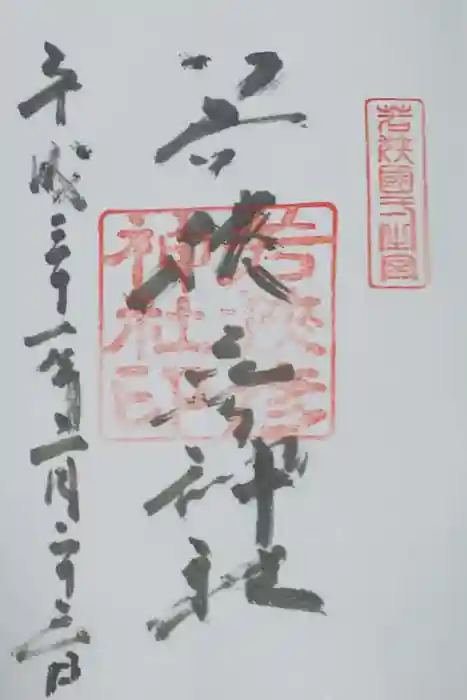 若狹國一之宮
若狭彦神社
若狭彦
神社印
平成三十一年二月二十三日